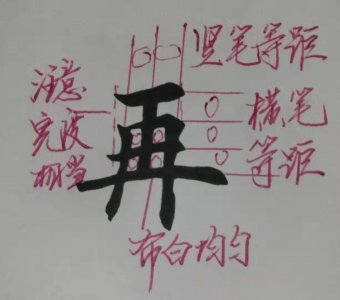 竖笔等距
注意
宽度
相当
再
横笔
等距
布白均匀